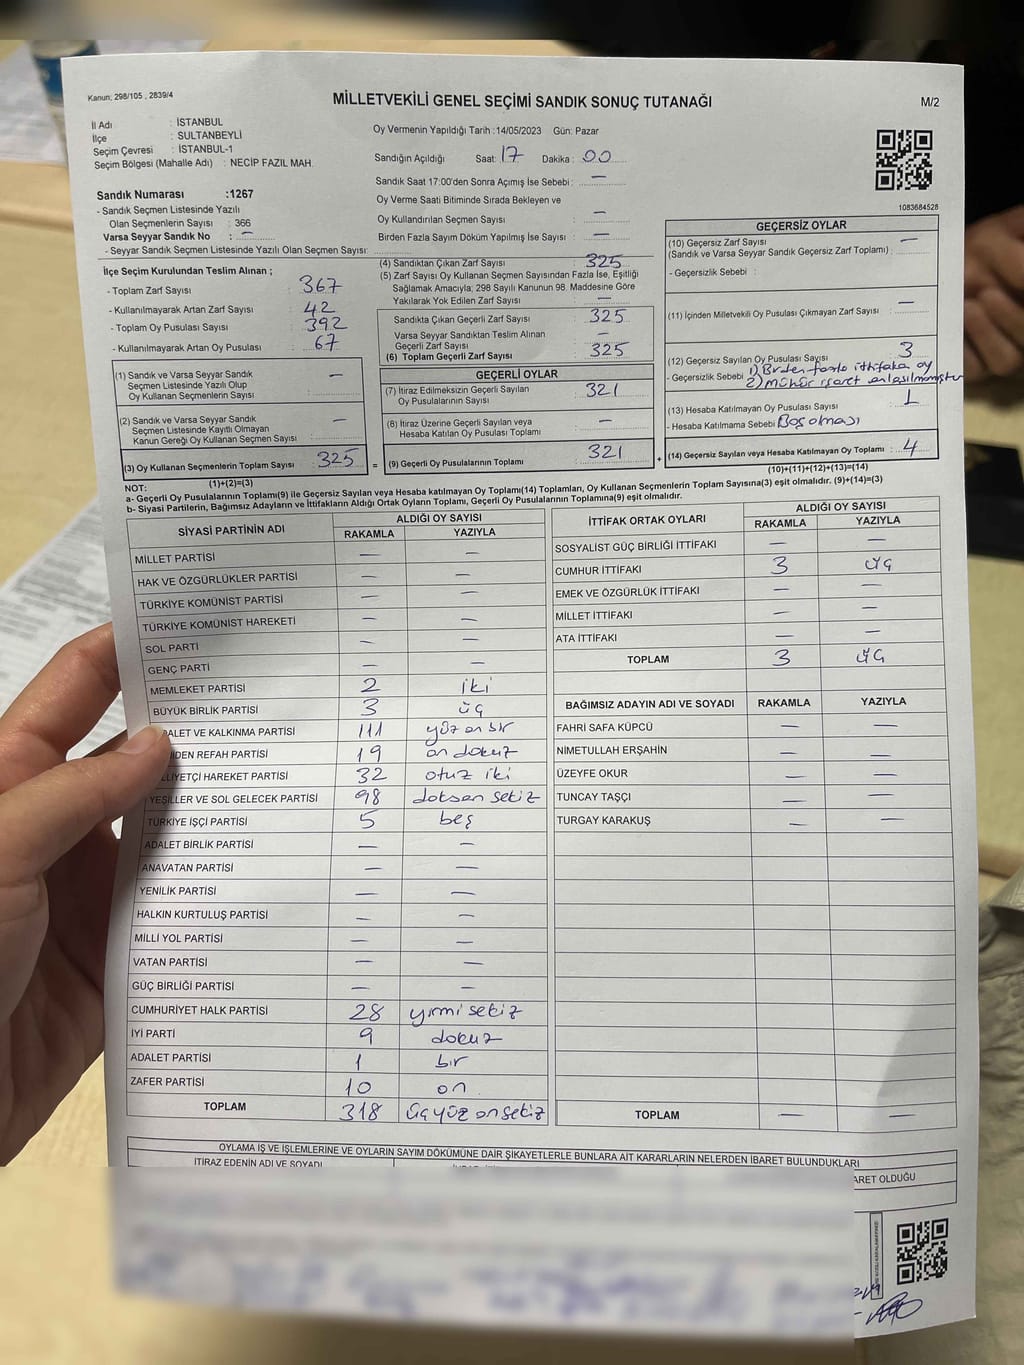 Kanun; 298/105 , 2839/4
MİLLETVEKİLİ GENEL SEÇİMİ SANDIK SONUÇ TUTANAĞI
M/2
İl Adı : İSTANBUL
İlçe : SULTANBEYLİ
Seçim Çevresi : İSTANBUL-1
Seçim Bölgesi (Mahalle Adı) : NECİP FAZIL MAH.
Sandık Numarası :1267
- Sandık Seçmen Listesinde Yazılı
Olan Seçmenlerin Sayısı : 366
Varsa Seyyar Sandık No : —
- Seyyar Sandık Seçmen Listesinde Yazılı Olan Seçmen Sayısı:
Oy Vermenin Yapıldığı Tarih :14/05/2023 Gün: Pazar
Sandığın Açıldığı Saat: 17 Dakika : 00
Sandık Saat 17:00'den Sonra Açımış İse Sebebi : —
Oy Verme Saati Bitiminde Sırada Bekleyen ve
Oy Kullandırılan Seçmen Sayısı : —
Birden Fazla Sayım Döküm Yapılmış İse Sayısı : —
1083684528
İlçe Seçim Kurulundan Teslim Alınan ;
- Toplam Zarf Sayısı : 367
- Kullanılmayarak Artan Zarf Sayısı : 42
- Toplam Oy Pusulası Sayısı : 392
- Kullanılmayarak Artan Oy Pusulası : 67
(1) Sandık ve Varsa Seyyar Sandık
Seçmen Listesinde Yazılı Olup
Oy Kullanan Seçmenlerin Sayısı : —
(2) Sandık ve Varsa Seyyar Sandık
Seçmen Listesinde Kayıtlı Olmayan
Kanun Gereği Oy Kullanan Seçmen Sayısı : —
(3) Oy Kullanan Seçmenlerin Toplam Sayısı : 325
(1)+(2)=(3)
(4) Sandıktan Çıkan Zarf Sayısı : 325
(5) Zarf Sayısı Oy Kullanan Seçmen Sayısından Fazla İse, Eşitliği
Sağlamak Amacıyla; 298 Sayılı Kanunun 98. Maddesine Göre
Yakılarak Yok Edilen Zarf Sayısı : —
Sandıkta Çıkan Geçerli Zarf Sayısı : 325
Varsa Seyyar Sandıktan Teslim Alınan
Geçerli Zarf Sayısı : —
(6) Toplam Geçerli Zarf Sayısı : 325
GEÇERLİ OYLAR
(7) İtiraz Edilmeksizin Geçerli Sayılan
Oy Pusulalarının Sayısı : 321
(8) İtiraz Üzerine Geçerli Sayılan veya
Hesaba Katılan Oy Pusulası Toplamı : —
= (9) Geçerli Oy Pusulalarının Toplamı : 321 +
GEÇERSİZ OYLAR
(10) Geçersiz Zarf Sayısı
(Sandık ve Varsa Seyyar Sandık Geçersiz Zarf Toplamı) : —
- Geçersizlik Sebebi :
(11) İçinden Milletvekili Oy Pusulası Çıkmayan Zarf Sayısı : —
(12) Geçersiz Sayılan Oy Pusulası Sayısı : 3
- Geçersizlik Sebebi : 1) Birden fazla ittifaka oy
2) mühür işaret anlaşılmamıştır
(13) Hesaba Katılmayan Oy Pusulası Sayısı : 1
- Hesaba Katılmama Sebebi : Boş olması
(14) Geçersiz Sayılan veya Hesaba Katılmayan Oy Toplamı : 4
(10)+(11)+(12)+(13)=(14)
NOT:
a- Geçerli Oy Pusulalarının Toplamı(9) ile Geçersiz Sayılan veya Hesaba katılmayan Oy Toplamı(14) Toplamları, Oy Kullanan Seçmenlerin Toplam Sayısına(3) eşit olmalıdır. (9)+(14)=(3)
b- Siyasi Partilerin, Bağımsız Adayların ve İttifakların Aldığı Ortak Oyların Toplamı, Geçerli Oy Pusulalarının Toplamına(9) eşit olmalıdır.
SİYASİ PARTİNİN ADI ALDIĞI OY SAYISI
RAKAMLA YAZIYLA
MİLLET PARTİSİ — —
HAK VE ÖZGÜRLÜKLER PARTİSİ — —
TÜRKİYE KOMÜNİST PARTİSİ — —
TÜRKİYE KOMÜNİST HAREKETİ — —
SOL PARTİ — —
GENÇ PARTİ — —
MEMLEKET PARTİSİ 2 iki
BÜYÜK BİRLİK PARTİSİ 3 üç
ALET VE KALKINMA PARTİSİ 111 yüz on bir
İDEN REFAH PARTİSİ 19 on dokuz
LİYETÇİ HAREKET PARTİSİ 32 otuz iki
YEŞİLLER VE SOL GELECEK PARTİSİ 98 doksan sekiz
TÜRKİYE İŞÇİ PARTİSİ 5 beş
ADALET BİRLİK PARTİSİ — —
ANAVATAN PARTİSİ — —
YENİLİK PARTİSİ — —
HALKIN KURTULUŞ PARTİSİ — —
MİLLİ YOL PARTİSİ — —
VATAN PARTİSİ — —
GÜÇ BİRLİĞİ PARTİSİ — —
CUMHURİYET HALK PARTİSİ 28 yirmi sekiz
İYİ PARTİ 9 dokuz
ADALET PARTİSİ 1 bir
ZAFER PARTİSİ 10 on
TOPLAM 318 üç yüz on sekiz
İTTİFAK ORTAK OYLARI ALDIĞI OY SAYISI
RAKAMLA YAZIYLA
SOSYALİST GÜÇ BİRLİĞİ İTTİFAKI — —
CUMHUR İTTİFAKI 3 üç
EMEK VE ÖZGÜRLÜK İTTİFAKI — —
MİLLET İTTİFAKI — —
ATA İTTİFAKI — —
TOPLAM 3 üç
BAĞIMSIZ ADAYIN ADI VE SOYADI RAKAMLA YAZIYLA
FAHRİ SAFA KÜPCÜ — —
NİMETULLAH ERŞAHİN — —
ÜZEYFE OKUR — —
TUNCAY TAŞÇI — —
TURGAY KARAKUŞ — —
TOPLAM — —
OYLAMA İŞ VE İŞLEMLERİNE VE OYLARIN SAYIM DÖKÜMÜNE DAİR ŞİKAYETLERLE BUNLARA AİT KARARLARIN NELERDEN İBARET BULUNDUKLARI
İTİRAZ EDENİN ADI VE SOYADI
ARET OLDUĞU